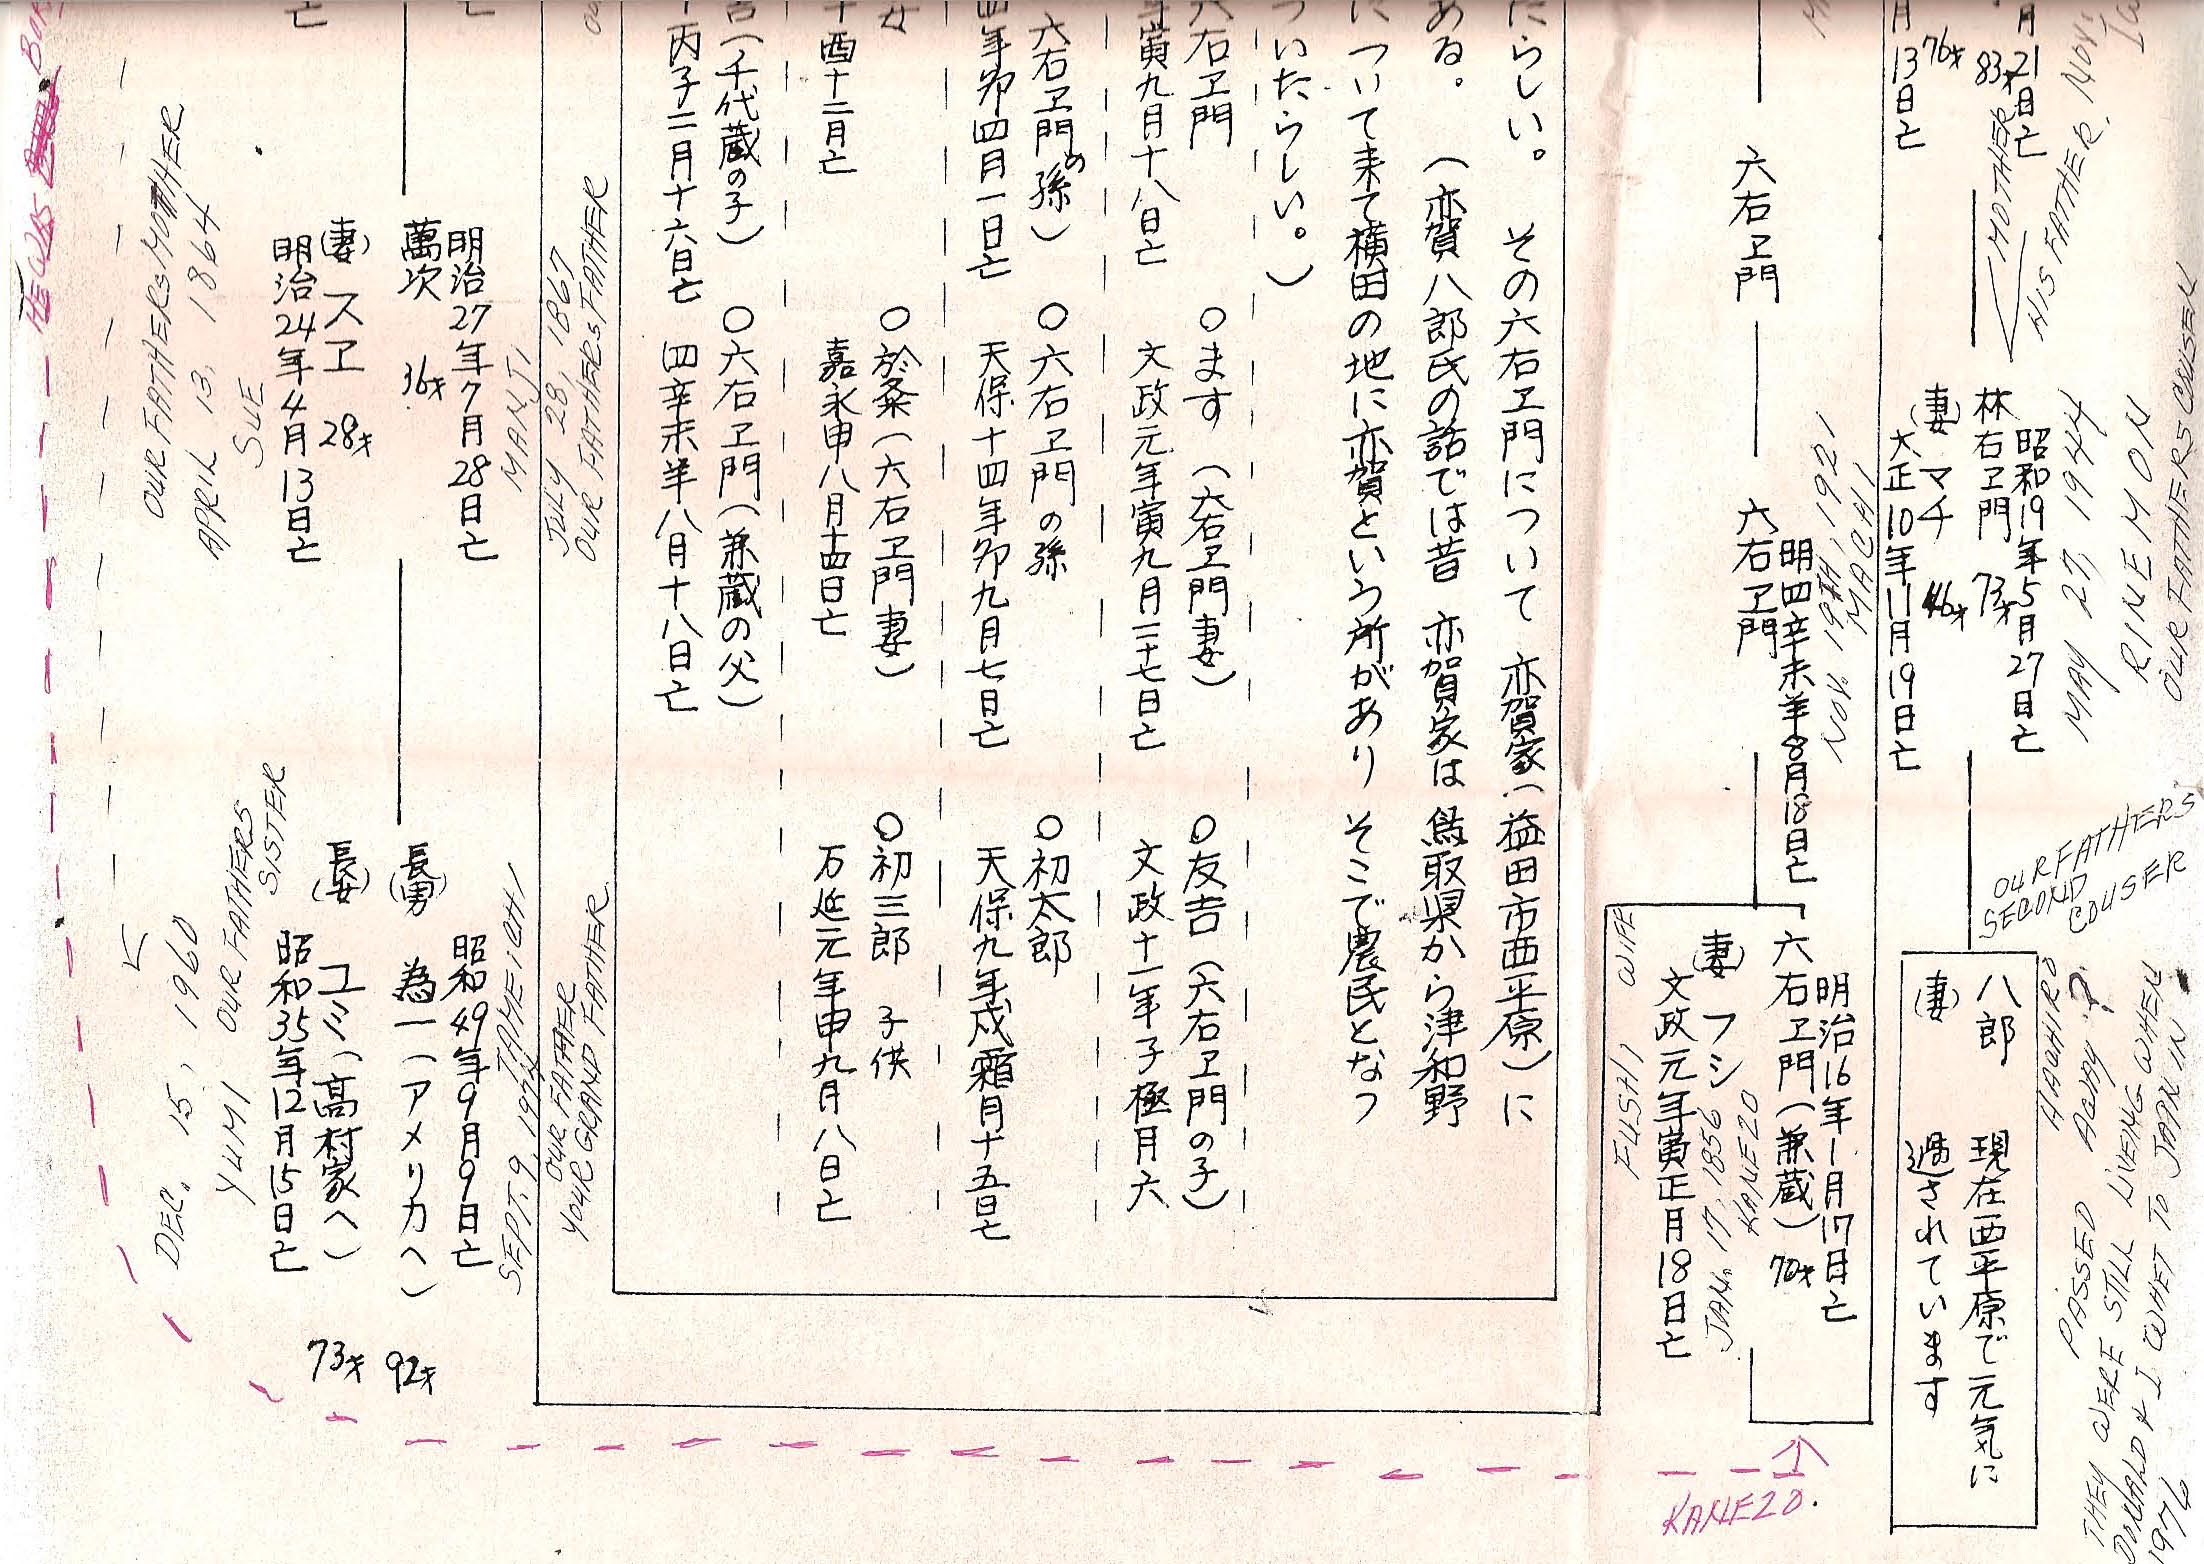 月21日亡
83才
76才
月13日亡
MOTHER
HIS FATHER. NOV.
昭和19年5月27日亡
林右ヱ門 73才
(妻) マチ 46才
大正10年11月19日亡
OUR FATHERS CRUSEN
RINEMON
MAY 27, 1944
MACHI
NOV. 19TH, 1921
OUR FATHERS
SECOND
COUSER
八郎 現在西平原で元気に
(妻) 過されています
HACHIRO
PASSED AWAY ?
THEY WERE STILL LIVEING WHEN
DONALD & I WHET TO JAPAN IN
1976
六右ヱ門
六右ヱ門
明四辛未羊8月18日亡
明治16年1月17日亡
六右ヱ門(兼蔵) 70才
(妻) フシ
文政元年寅正月18日亡
KANEZO
JAN. 17, 1856
FUSHI, WIFE
KANEZO.
たらしい。 その六右ヱ門について 亦賀家(益田市西平原)に
ある。 (亦賀八郎氏の話では昔 亦賀家は鳥取県から津和野
について来て横田の地に亦賀という所があり そこで農民となつ
ついたらしい。)
六右ヱ門
年寅九月十八日亡
○ます (六右ヱ門妻)
文政元年寅九月二十七日亡
○友吉 (六右ヱ門の子)
文政十一年子極月六
六右ヱ門の孫)
四年卯四月一日亡
○六右ヱ門の孫
天保十四年卯九月七日亡
○初太郎
天保九年戌霜月十五日亡
女
十酉十二月亡
○於粂(六右ヱ門妻)
嘉永申八月十四日亡
○初三郎 子供
万延元年申九月八日亡
吉(千代蔵の子)
丙子二月十六日亡
○六右ヱ門(兼蔵の父)
四辛未羊八月十八日亡
OUR FATHERS FATHER
JULY 28, 1867
MANJI
明治27年7月28日亡
萬次 36才
(妻) スヱ 28才
明治24年4月13日亡
SUE
APRIL 13, 1864
OUR FATHERS MOTHER
YOUR GRAND FATHER
OUR FATHER
TAMEICHI
SEPT. 9, 1974
昭和49年9月9日亡
(長男) 為一(アメリカへ) 92才
(長女) ユミ(高村家へ) 73才
昭和35年12月15日亡
OUR FATHERS
SISTER
YUMI
DEC. 15, 1960
HE WAS BOR